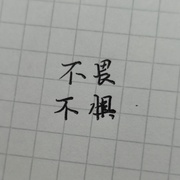 不畏
不惧